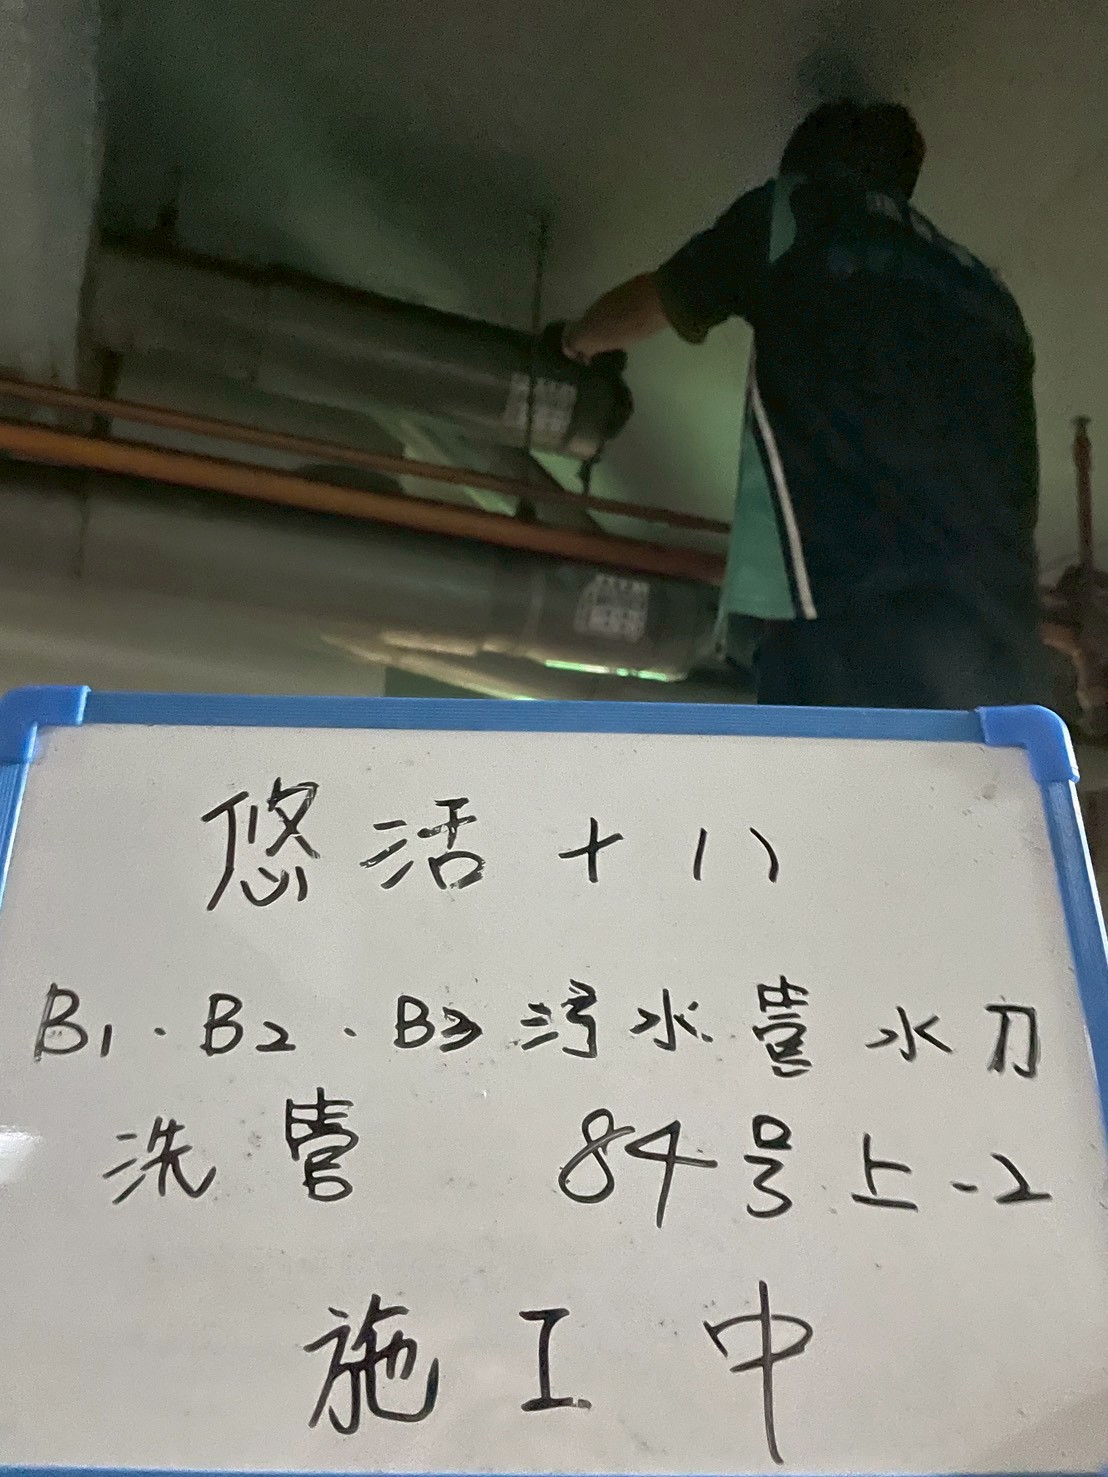 悠活十八
B1.B2.B3污水管水刀
洗管 84号上-2
施工中